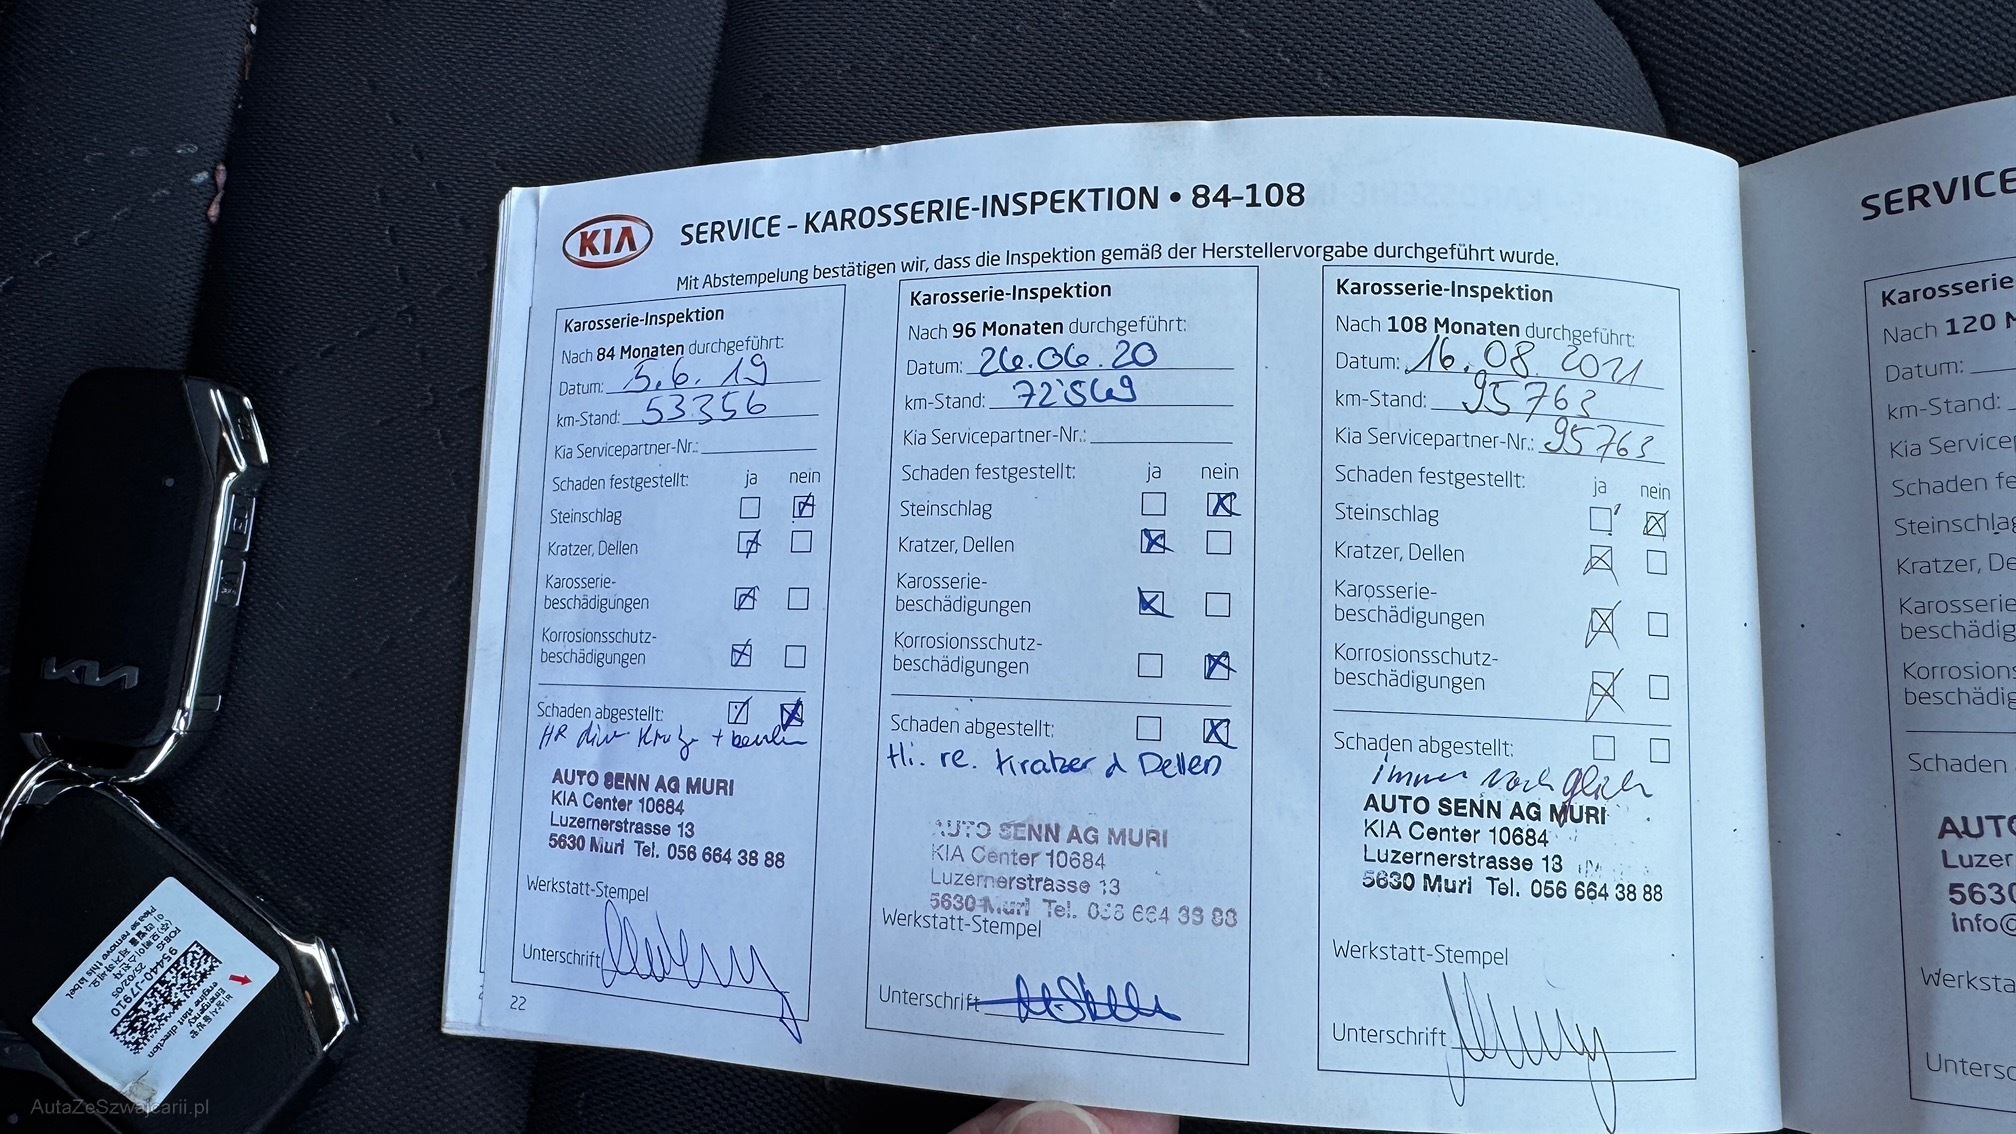 KIA SERVICE – KAROSSERIE-INSPEKTION • 84–108
Mit Abstempelung bestätigen wir, dass die Inspektion gemäß der Herstellervorgabe durchgeführt wurde.
Karosserie-Inspektion
Nach 84 Monaten durchgeführt:
Datum: 5.6.19
km-Stand: 53356
Kia Servicepartner-Nr.:
Schaden festgestellt: ja nein
Steinschlag
Kratzer, Dellen
Karosserie-
beschädigungen
Korrosionsschutz-
beschädigungen
Schaden abgestellt:
HR
AUTO SENN AG MURI
KIA Center 10684
Luzernerstrasse 13
5630 Muri Tel. 056 664 38 88
Werkstatt-Stempel
Unterschrift
22
Karosserie-Inspektion
Nach 96 Monaten durchgeführt:
Datum: 26.06.20
km-Stand: 72'569
Kia Servicepartner-Nr.:
Schaden festgestellt: ja nein
Steinschlag
Kratzer, Dellen
Karosserie-
beschädigungen
Korrosionsschutz-
beschädigungen
Schaden abgestellt:
Hi. re. Kratzer & Dellen
AUTO SENN AG MURI
KIA Center 10684
Luzernerstrasse 13
5630 Muri Tel. 056 664 38 88
Werkstatt-Stempel
Unterschrift
Karosserie-Inspektion
Nach 108 Monaten durchgeführt:
Datum: 16.08.2021
km-Stand: 95763
Kia Servicepartner-Nr.: 95763
Schaden festgestellt: ja nein
Steinschlag
Kratzer, Dellen
Karosserie-
beschädigungen
Korrosionsschutz-
beschädigungen
Schaden abgestellt:
immer noch gleich
AUTO SENN AG MURI
KIA Center 10684
Luzernerstrasse 13
5630 Muri Tel. 056 664 38 88
Werkstatt-Stempel
Unterschrift
SERVICE
Karosserie
Nach 120 M
Datum:
km-Stand:
Kia Service
Schaden fe
Steinschlag
Kratzer, De
Karosserie
beschädig
Korrosions
beschädig
Schaden
AUTO
Luzer
5630
info@
Werksta
Untersc
KIA
FOB-G
95440-J7910
25/02/05
Please remove this label
Emergency
engine start direction
AutaZeSzwajcarii.pl